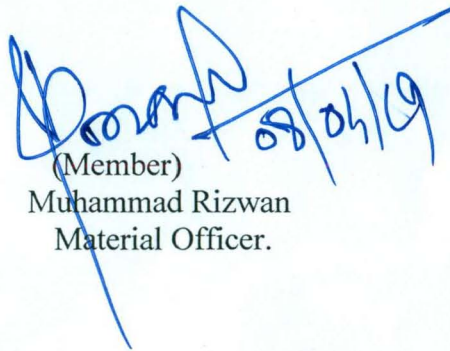 08/04/19
(Member)
Muhammad Rizwan
Material Officer.